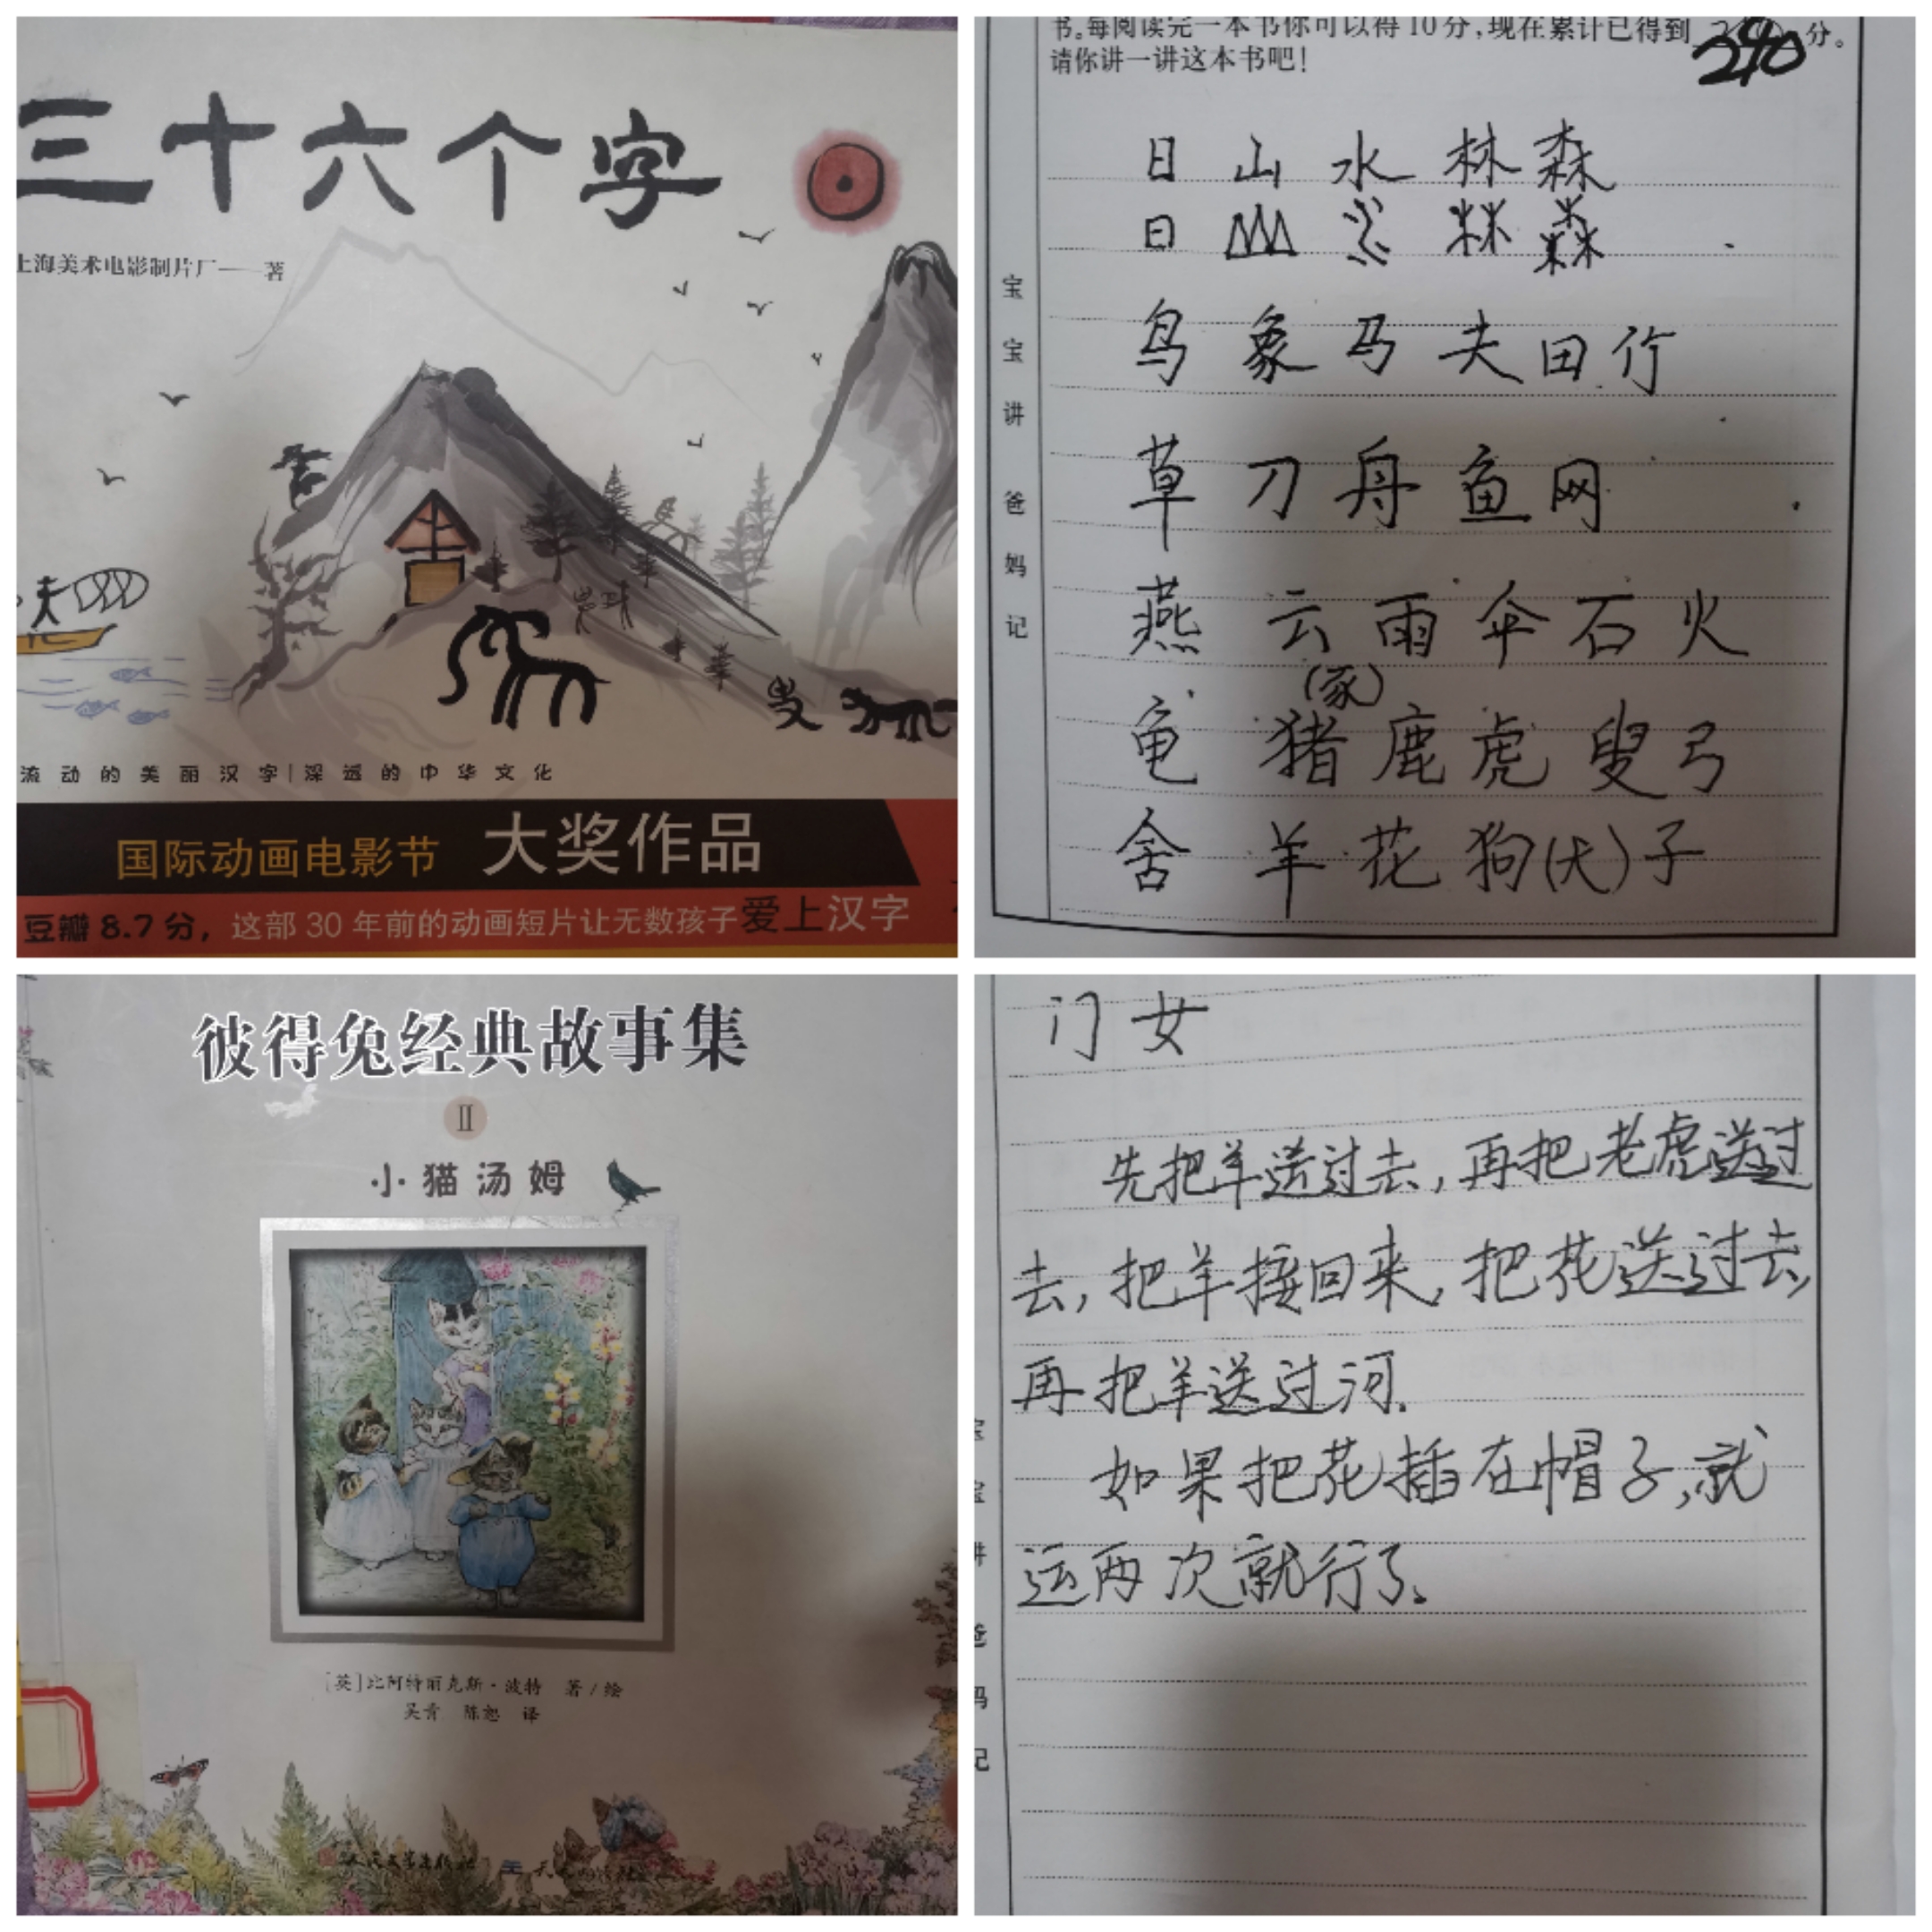 三十六个字
上海美术电影制片厂——著
流动的美丽汉字|深邃的中华文化
国际动画电影节 大奖作品
豆瓣8.7分，这部30年前的动画短片让无数孩子爱上汉字
书。每阅读完一本书你可以得10分，现在累计已得到 240 分。
请你讲一讲这本书吧！
宝宝讲 爸妈记
日 山 水 林 森
鸟 象 马 夫 田 竹
草 刀 舟 鱼 网
燕 云 雨 伞 石 火
(豕)
龟 猪 鹿 虎 叟 弓
舍 羊 花 狗(犬) 子
彼得兔经典故事集
II
小猫汤姆
[英]比阿特丽克斯·波特 著/绘
吴青 陈恕 译
人民文学出版社
门 女
先把羊送过去,再把老虎送过
去,把羊接回来,把花送过去,
再把羊送过河.
如果把花插在帽子,就
运两次就行了.